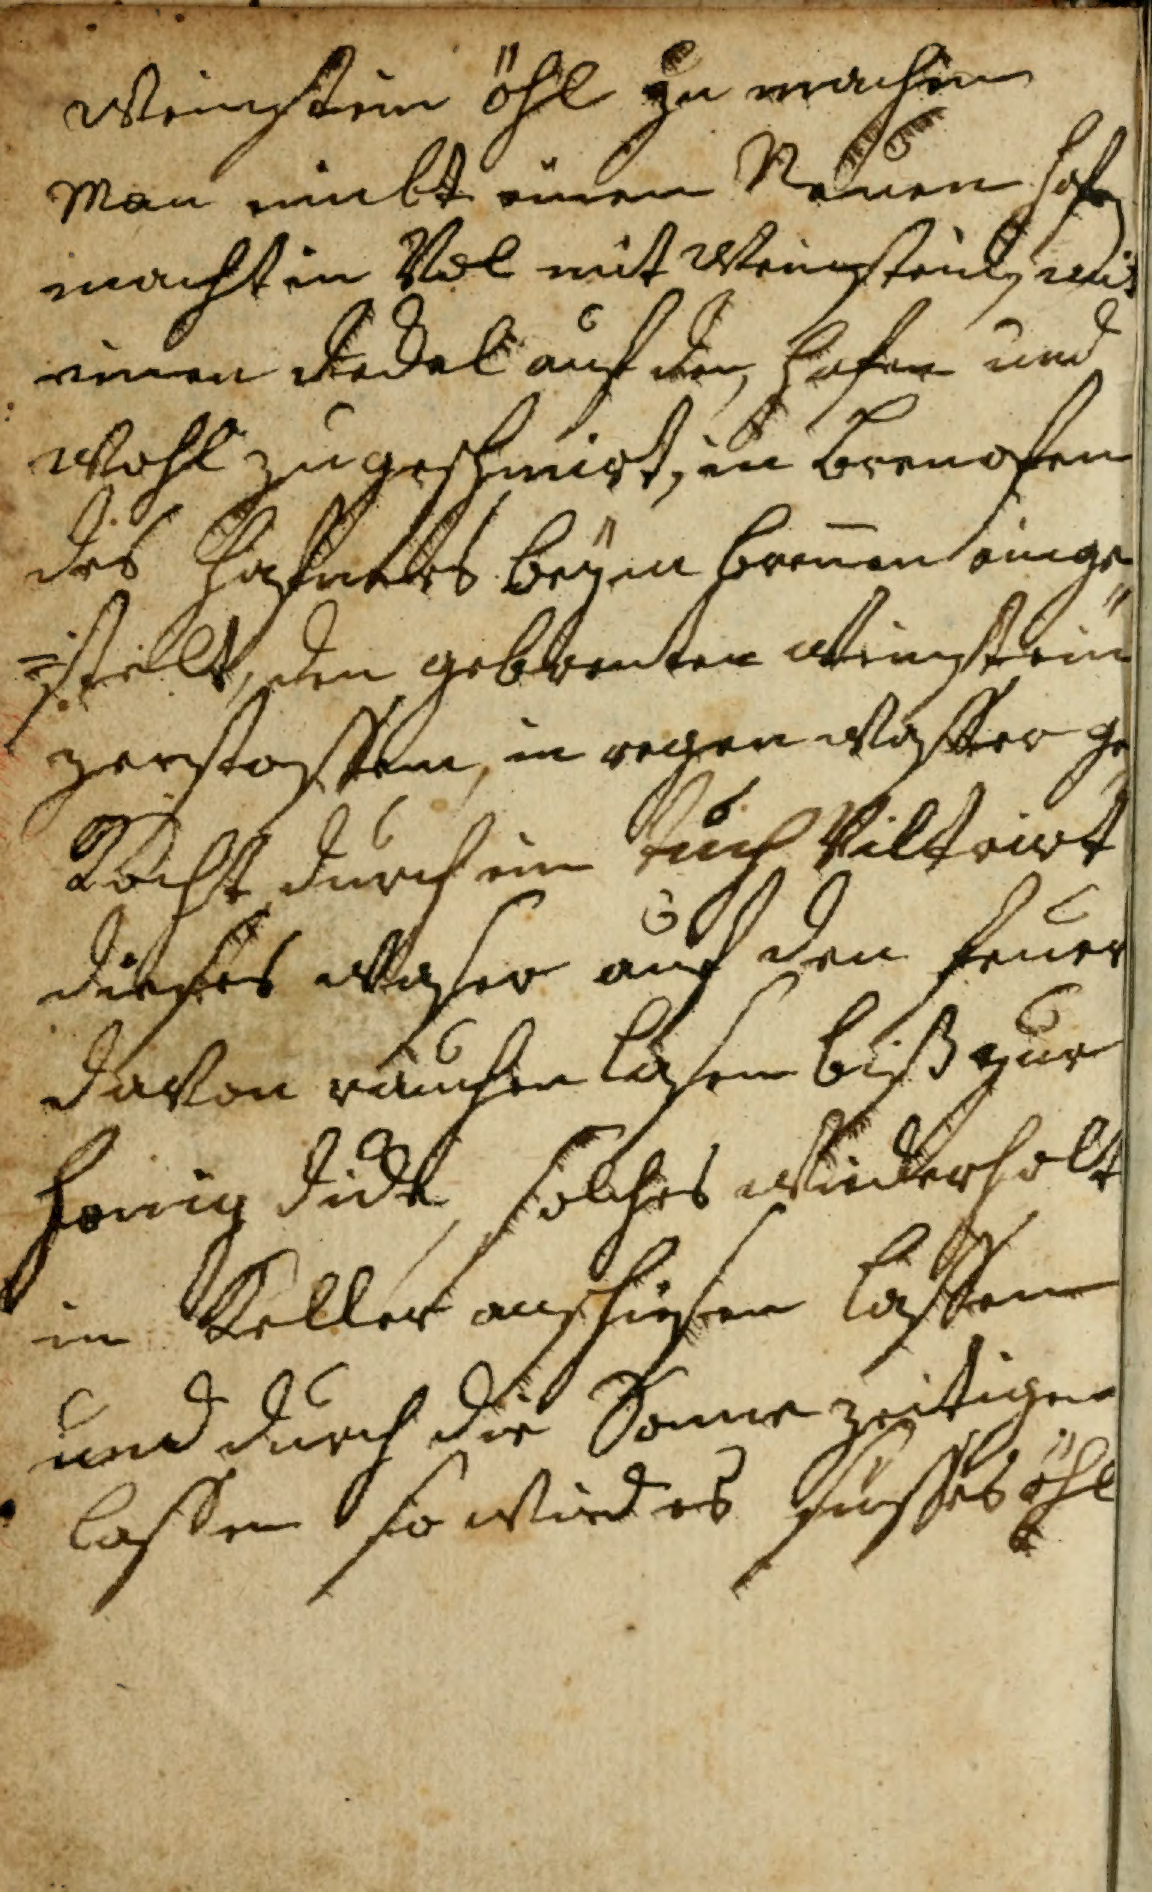 Weinstein öhl zu machen
Man nimbt einen Neuen hafen
macht in Vol mit Weinstein, mit
einen deckel auf den hafen und
wohl zugeschmirt, in brenofen
des Hafners beÿm brenen einge
=stelt, den gebrenten Weinstein
zerstossen, in regen wasser ge
Kocht durch ein tuch Viltrirt
dieses waser auf den feuer
davon rauchen lasen biß zur
honig dick, solches wiederholt
im Keller anschiesen lassen
und durch die Sonne zeitigen
lassen so wird es süsses öhl